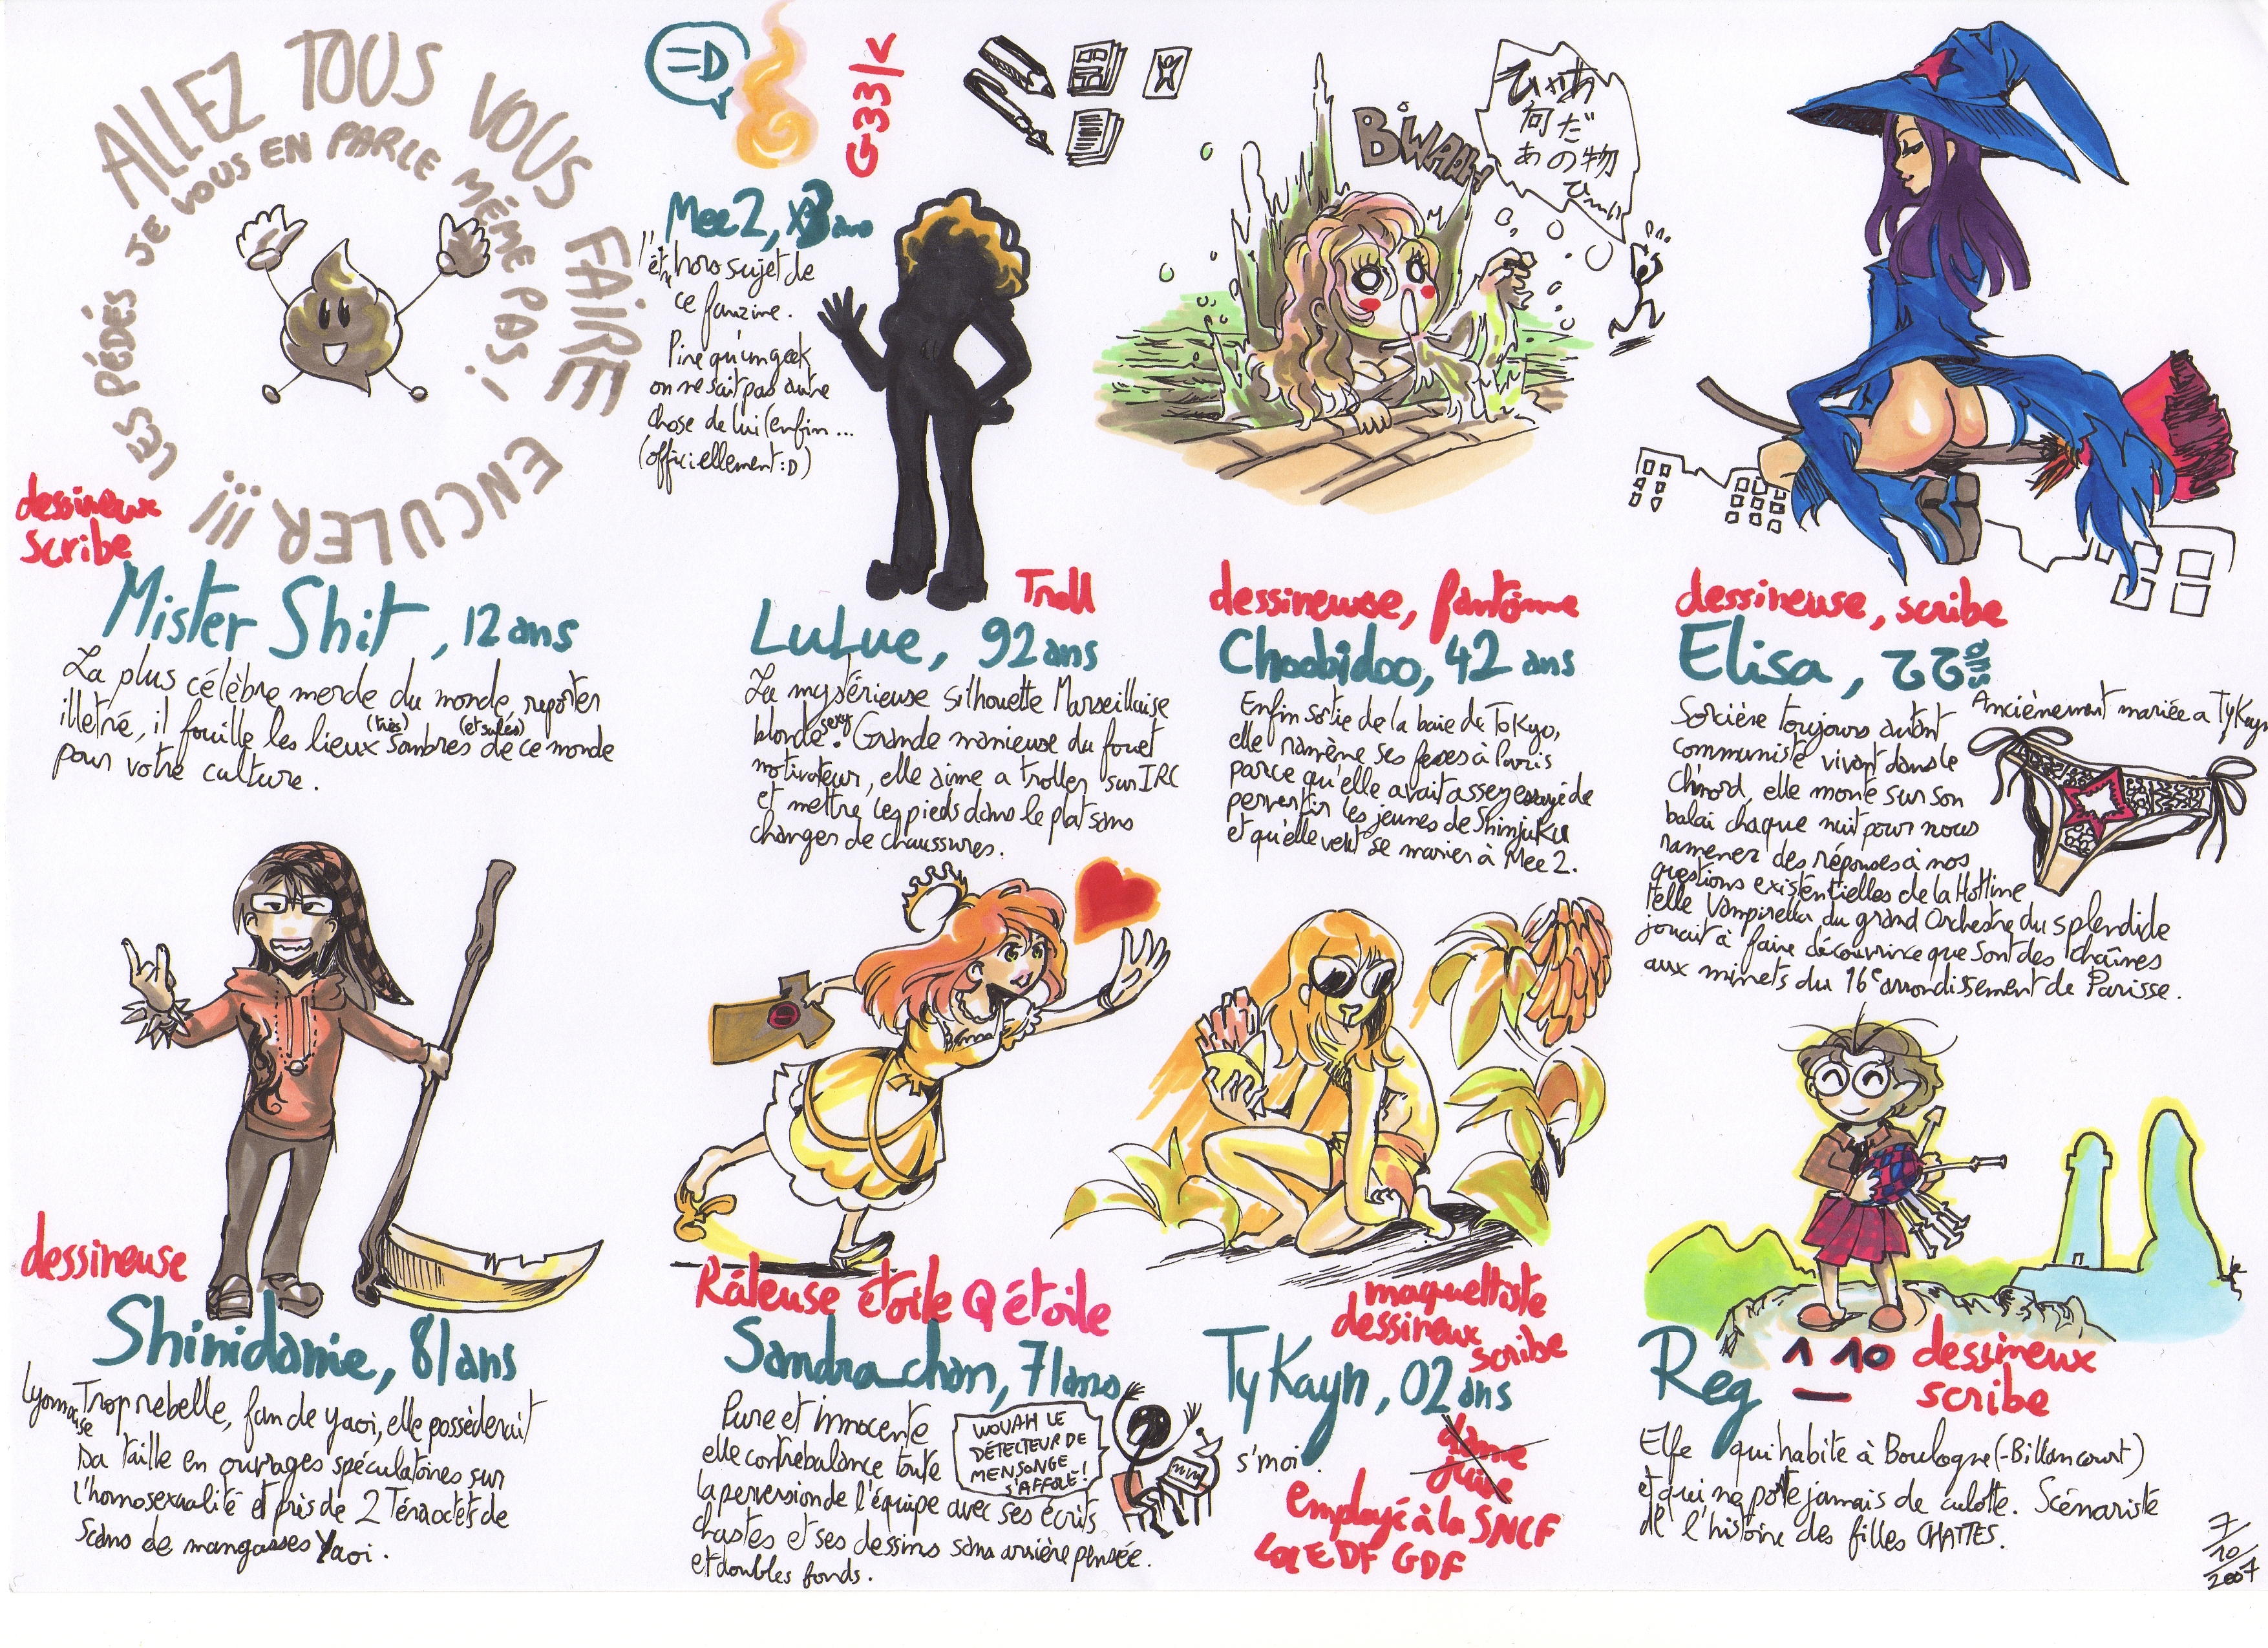 ALLEZ TOUS VOUS FAIRE ENCULER !!!
LES PÉDÉS JE VOUS EN PARLE MÊME PAS !
dessineux
scribe
Mister Shit, 12 ans
La plus célèbre merde du monde, reporter
illetré, il fouille les lieux (très) sombres (et sales) de ce monde
pour votre culture.
=D
G33k
Mee2, ans
hors sujet de
ce fanzine.
Pire qu'un geek
on ne sait pas autre
chose de lui (enfin...
(officiellement :D)
Troll
LuLue, 92 ans
La mystérieuse silhouette Marseillaise
blonde sexy. Grande manieuse du fouet
motivateur, elle aime a troller sur IRC
et mettre les pieds dans le plat sans
changer de chaussures.
BWAAH
ひゃあ
何だ
あの物
dessineuse, fantôme
Choobidoo, 42 ans
Enfin sortie de la baie de Tokyo,
elle ramène ses fesses à Paris
parce qu'elle avait assez essayé de
pervertir les jeunes de Shinjuku
et qu'elle veut se marier à Mee2.
dessineuse, scribe
Elisa, 22 ans
Ancienement mariée a TyKayn
Sorcière toujours autant
communiste vivant dans le
Ch'nord, elle monte sur son
balai chaque nuit pour nous
ramener des réponses à nos
questions existentielles de la Hotline
telle Vampirella du grand Orchestre du splendide
jouait à faire découvrir ce que sont des chaînes
aux minets du 16e arrondissement de Parisse.
dessineuse
Shinidamie, 81 ans
Lyonnaise
Trop rebelle, fan de Yaoi, elle possèderait
sa taille en ouvrages spéculatoires sur
l'homosexualité et près de 2 Téraoctets de
scans de mangasses Yaoi.
Râleuse étoile Q étoile
Sandra_chan, 71 ans
Pure et innocente
elle contrebalance toute
la perversion de l'équipe avec ses écrits
chastes et ses dessins sans arrière pensée
et doubles fonds.
WOUAH LE
DÉTECTEUR DE
MENSONGE
S'AFFOLE!
maquettiste
dessineux
scribe
TyKayn, 02 ans
s'moi.
employé à la SNCF
EDF GDF
Reg 1 10
dessineux
scribe
Elfe qui habite à Boulogne (-Billancourt)
et qui ne porte jamais de culotte. Scénariste
de l'histoire des filles CHATTES.
7/10/2007